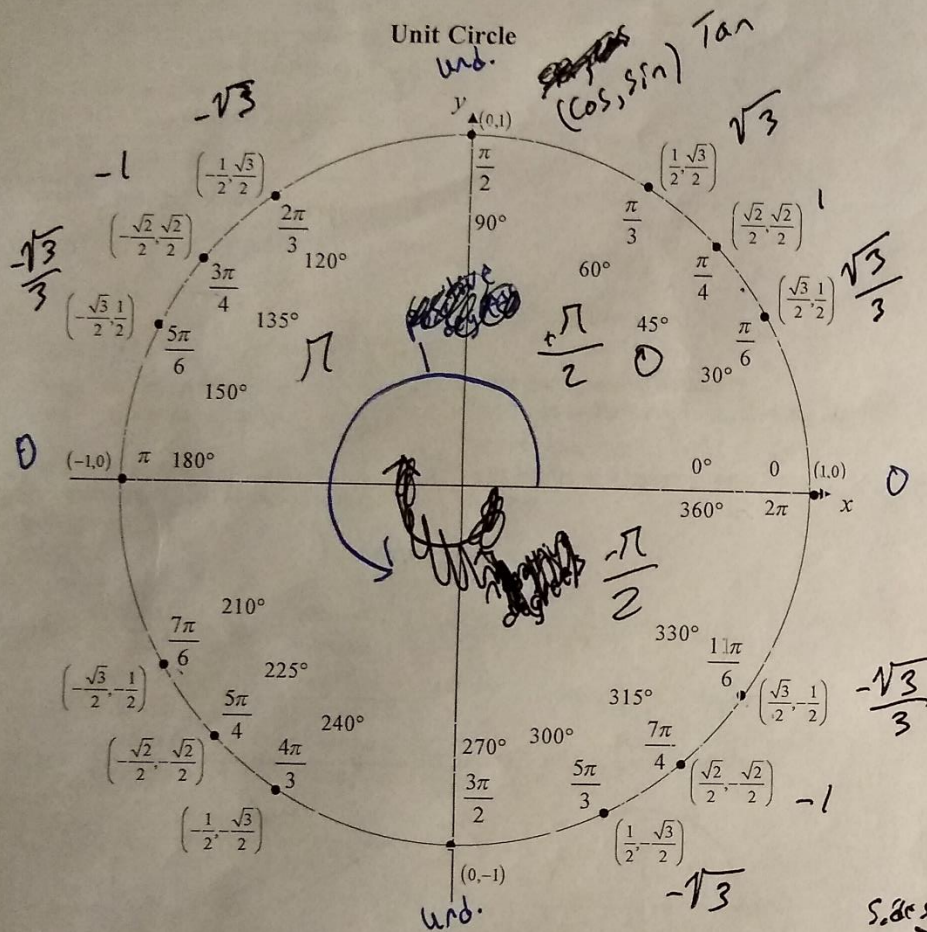 Unit Circle
und.
(cos, sin) Tan
y
(0,1)
π/2
90°
(1/2, √3/2) √3
π/3
60°
(√2/2, √2/2) 1
π/4
45°
(√3/2, 1/2) √3/3
π/6
30°
-√3
(-1/2, √3/2)
2π/3
120°
-1
(-√2/2, √2/2)
3π/4
135°
-√3/3
(-√3/2, 1/2)
5π/6
150°
π
+π/2
0
0
(-1,0) π 180°
0° 0 (1,0) 0
360° 2π x
-π/2
210°
7π/6
(-√3/2, -1/2)
225°
5π/4
(-√2/2, -√2/2)
240°
4π/3
(-1/2, -√3/2)
270°
3π/2
(0,-1)
und.
300°
5π/3
(1/2, -√3/2)
-√3
315°
7π/4
(√2/2, -√2/2) -1
330°
11π/6
(√3/2, -1/2) -√3/3
Sides